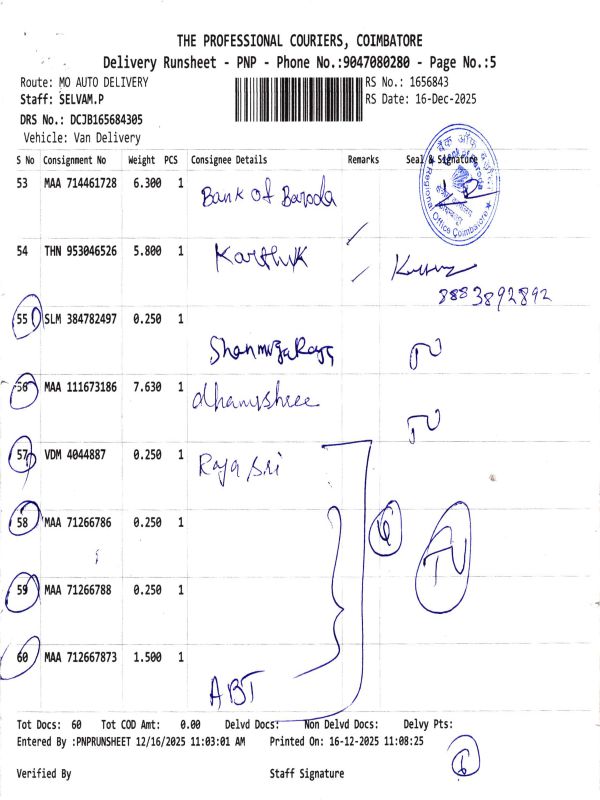 THE PROFESSIONAL COURIERS, COIMBATORE
Delivery Runsheet - PNP - Phone No.:9047080280 - Page No.:5
Route: MO AUTO DELIVERY RS No.: 1656843
Staff: SELVAM.P RS Date: 16-Dec-2025
DRS No.: DCJB165684305
Vehicle: Van Delivery
S No Consignment No Weight PCS Consignee Details Remarks Seal & Signature
53 MAA 714461728 6.300 1 Bank of Baroda
बैंक ऑफ़ बड़ौदा
Bank of Baroda
Regional Office Coimbatore
54 THN 953046526 5.800 1 Karthik
8883892892
55 SLM 384782497 0.250 1
ShanmugaRaja TU
56 MAA 111673186 7.630 1 dhanushree
TU
57 VDM 4044887 0.250 1 Raja sri
58 MAA 71266786 0.250 1
6 TU
59 MAA 71266788 0.250 1
60 MAA 712667873 1.500 1
ABT
Tot Docs: 60 Tot COD Amt: 0.00 Delvd Docs: Non Delvd Docs: Delvy Pts:
Entered By :PNPRUNSHEET 12/16/2025 11:03:01 AM Printed On: 16-12-2025 11:08:25
6
Verified By Staff Signature